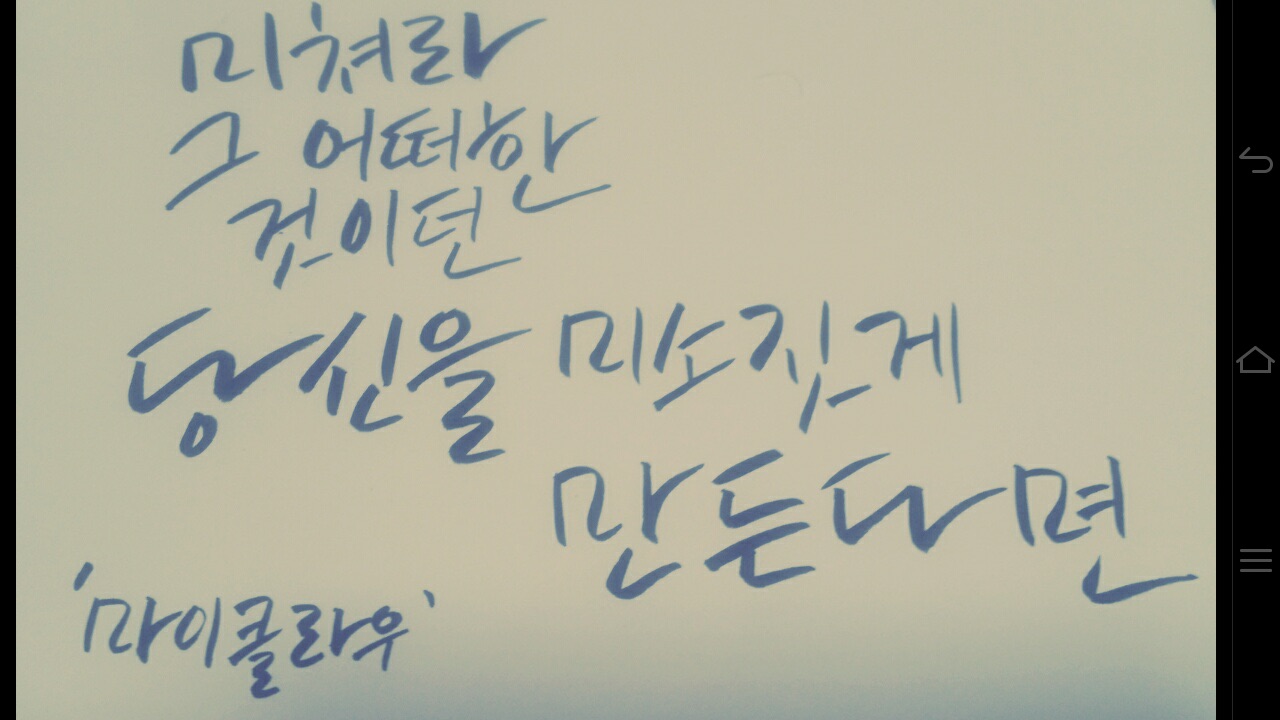 미쳐라
그 어떠한
것이던
당신을 미소짓게
만든다면
'마이클라우'